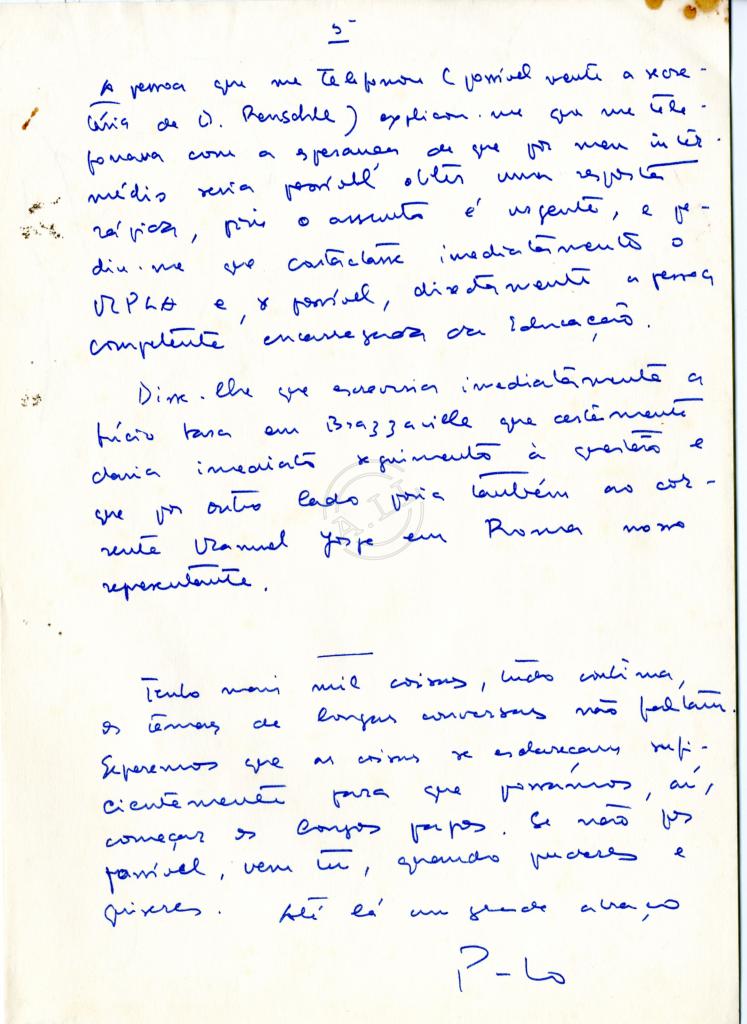 5-
A pessoa que me telefonou (possivelmente a secre-
tária de D. Renschle) explicou-me que me tele-
fonava com a esperança de que por meu inter-
médio seria possível obter uma resposta
rápida, pois o assunto é urgente, e pe-
diu-me que contactasse imediatamente o
MPLA e, se possível, directamente a pessoa
competente encarregada da Educação.
Disse-lhe que escreveria imediatamente a
Lúcio Lara em Brazzaville que certamente
daria imediato seguimento à questão e
que por outro lado poria também ao cor-
rente Manuel Jorge em Roma nosso
representante.
Tenho mais mil coisas, tudo continua,
os temas de longas conversas não faltam.
Esperemos que as coisas se esclareçam sufi-
cientemente para que possamos, aí,
começar os longos papos. Se não for
possível, vem tu, quando puderes e
quiseres. Até lá um grande abraço
A.T.L.